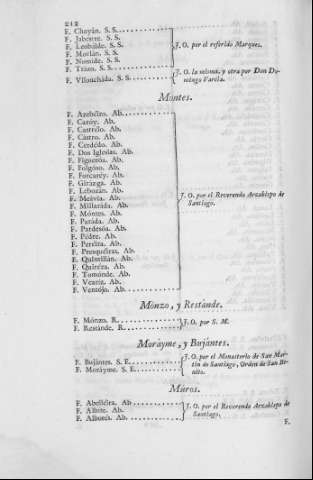 212
F. Chayán. S. S.
F. Jabestre. S. S.
F. Leobilde. S. S.
F. Morlán. S. S.
F. Numide. S. S.
F. Trazo. S. S.
J. O. por el referido Marques.
F. Visonchada. S. S.
J. O. la misma, y otra por Don Do-
mingo Varela.
Montes.
F. Acebéiro. Ab.
F. Caróy. Ab.
F. Castrélo. Ab.
F. Cástro. Ab.
F. Cerdédo. Ab.
F. Dos Iglesias. Ab.
F. Figueróa. Ab.
F. Folgóso. Ab.
F. Forcaréy. Ab.
F. Girázga. Ab.
F. Lebozán. Ab.
F. Meávia. Ab.
F. Millaráda. Ab.
F. Móntes. Ab.
F. Paráda. Ab.
F. Pardesóa. Ab.
F. Pédre. Ab.
F. Peréira. Ab.
F. Presquéiras. Ab.
F. Quintillán. Ab.
F. Quiréza. Ab.
F. Tomónde. Ab.
F. Veariz. Ab.
F. Ventójo. Ab.
J. O. por el Reverendo Arzobispo de
Santiago.
Mónzo, y Restánde.
F. Mónzo. R.
F. Restánde. R.
J. O. por S. M.
Moráyme, y Bujántes.
F. Bujántes. S. E.
F. Moráyme. S. E.
J. O. por el Monasterio de San Mar-
tin de Santiago, Orden de San Be-
nito.
Múros.
F. Abelléira. Ab.
F. Albite. Ab.
F. Albores. Ab.
J. O. por el Reverendo Arzobispo de
Santiago.
F.